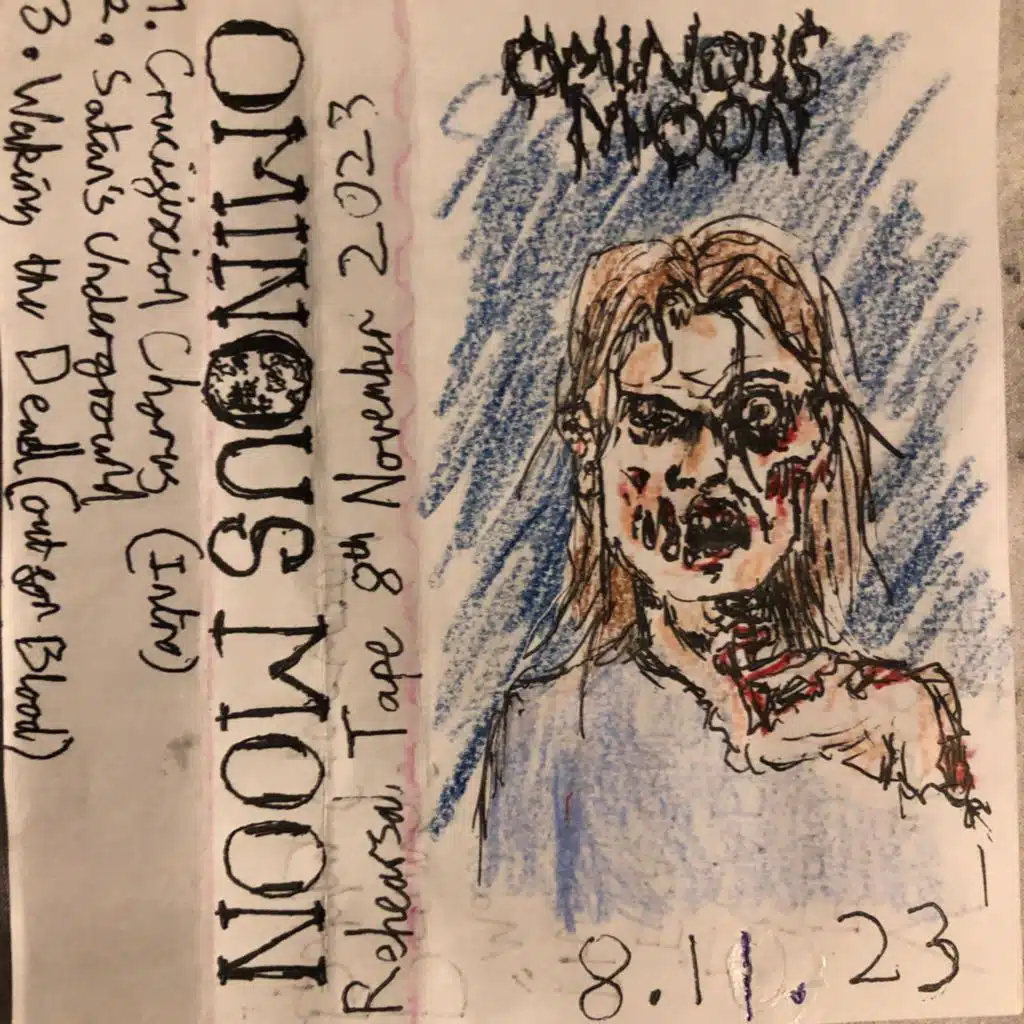 OMINOUS
MOON
8.11.23
OMINOUS MOON
Rehearsal Tape 8th November 2023
1. Crucifixion Chorus (Intro)
2. Satan's Underground
3. Waking the Dead (out for Blood)